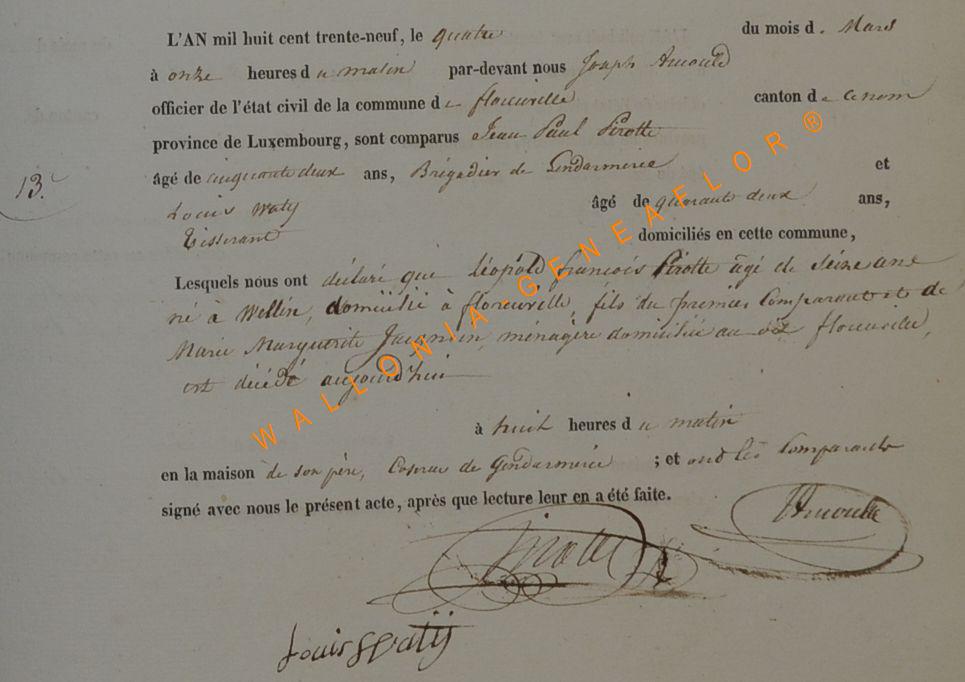 L'AN mil huit cent trente-neuf, le quatre du mois d. Mars
à onze heures du matin par-devant nous Joseph Arnould
officier de l'état civil de la commune de florenville canton de idem
province de Luxembourg, sont comparus Jean Paul Pirotte
âgé de cinquante deux ans, Brigadier de Gendarmerie et
13.
Louis Waty âgé de quarante deux ans,
Tisserant domiciliés en cette commune,
Lesquels nous ont déclaré que Léopold françois Pirotte âgé de seize ans
né à Wellin, domicilié à florenville, fils du premier Comparant et de
Marie Marguerite Jacquemin, ménagère domiciliée au dit florenville,
est décédé aujourd'hui
à huit heures du matin
en la maison de son père, Caserne de Gendarmerie ; et ont les Comparants
signé avec nous le présent acte, après que lecture leur en a été faite.
Pirotte
JArnould
Louis Watÿ
WALLONIA GENEAFLOR ®